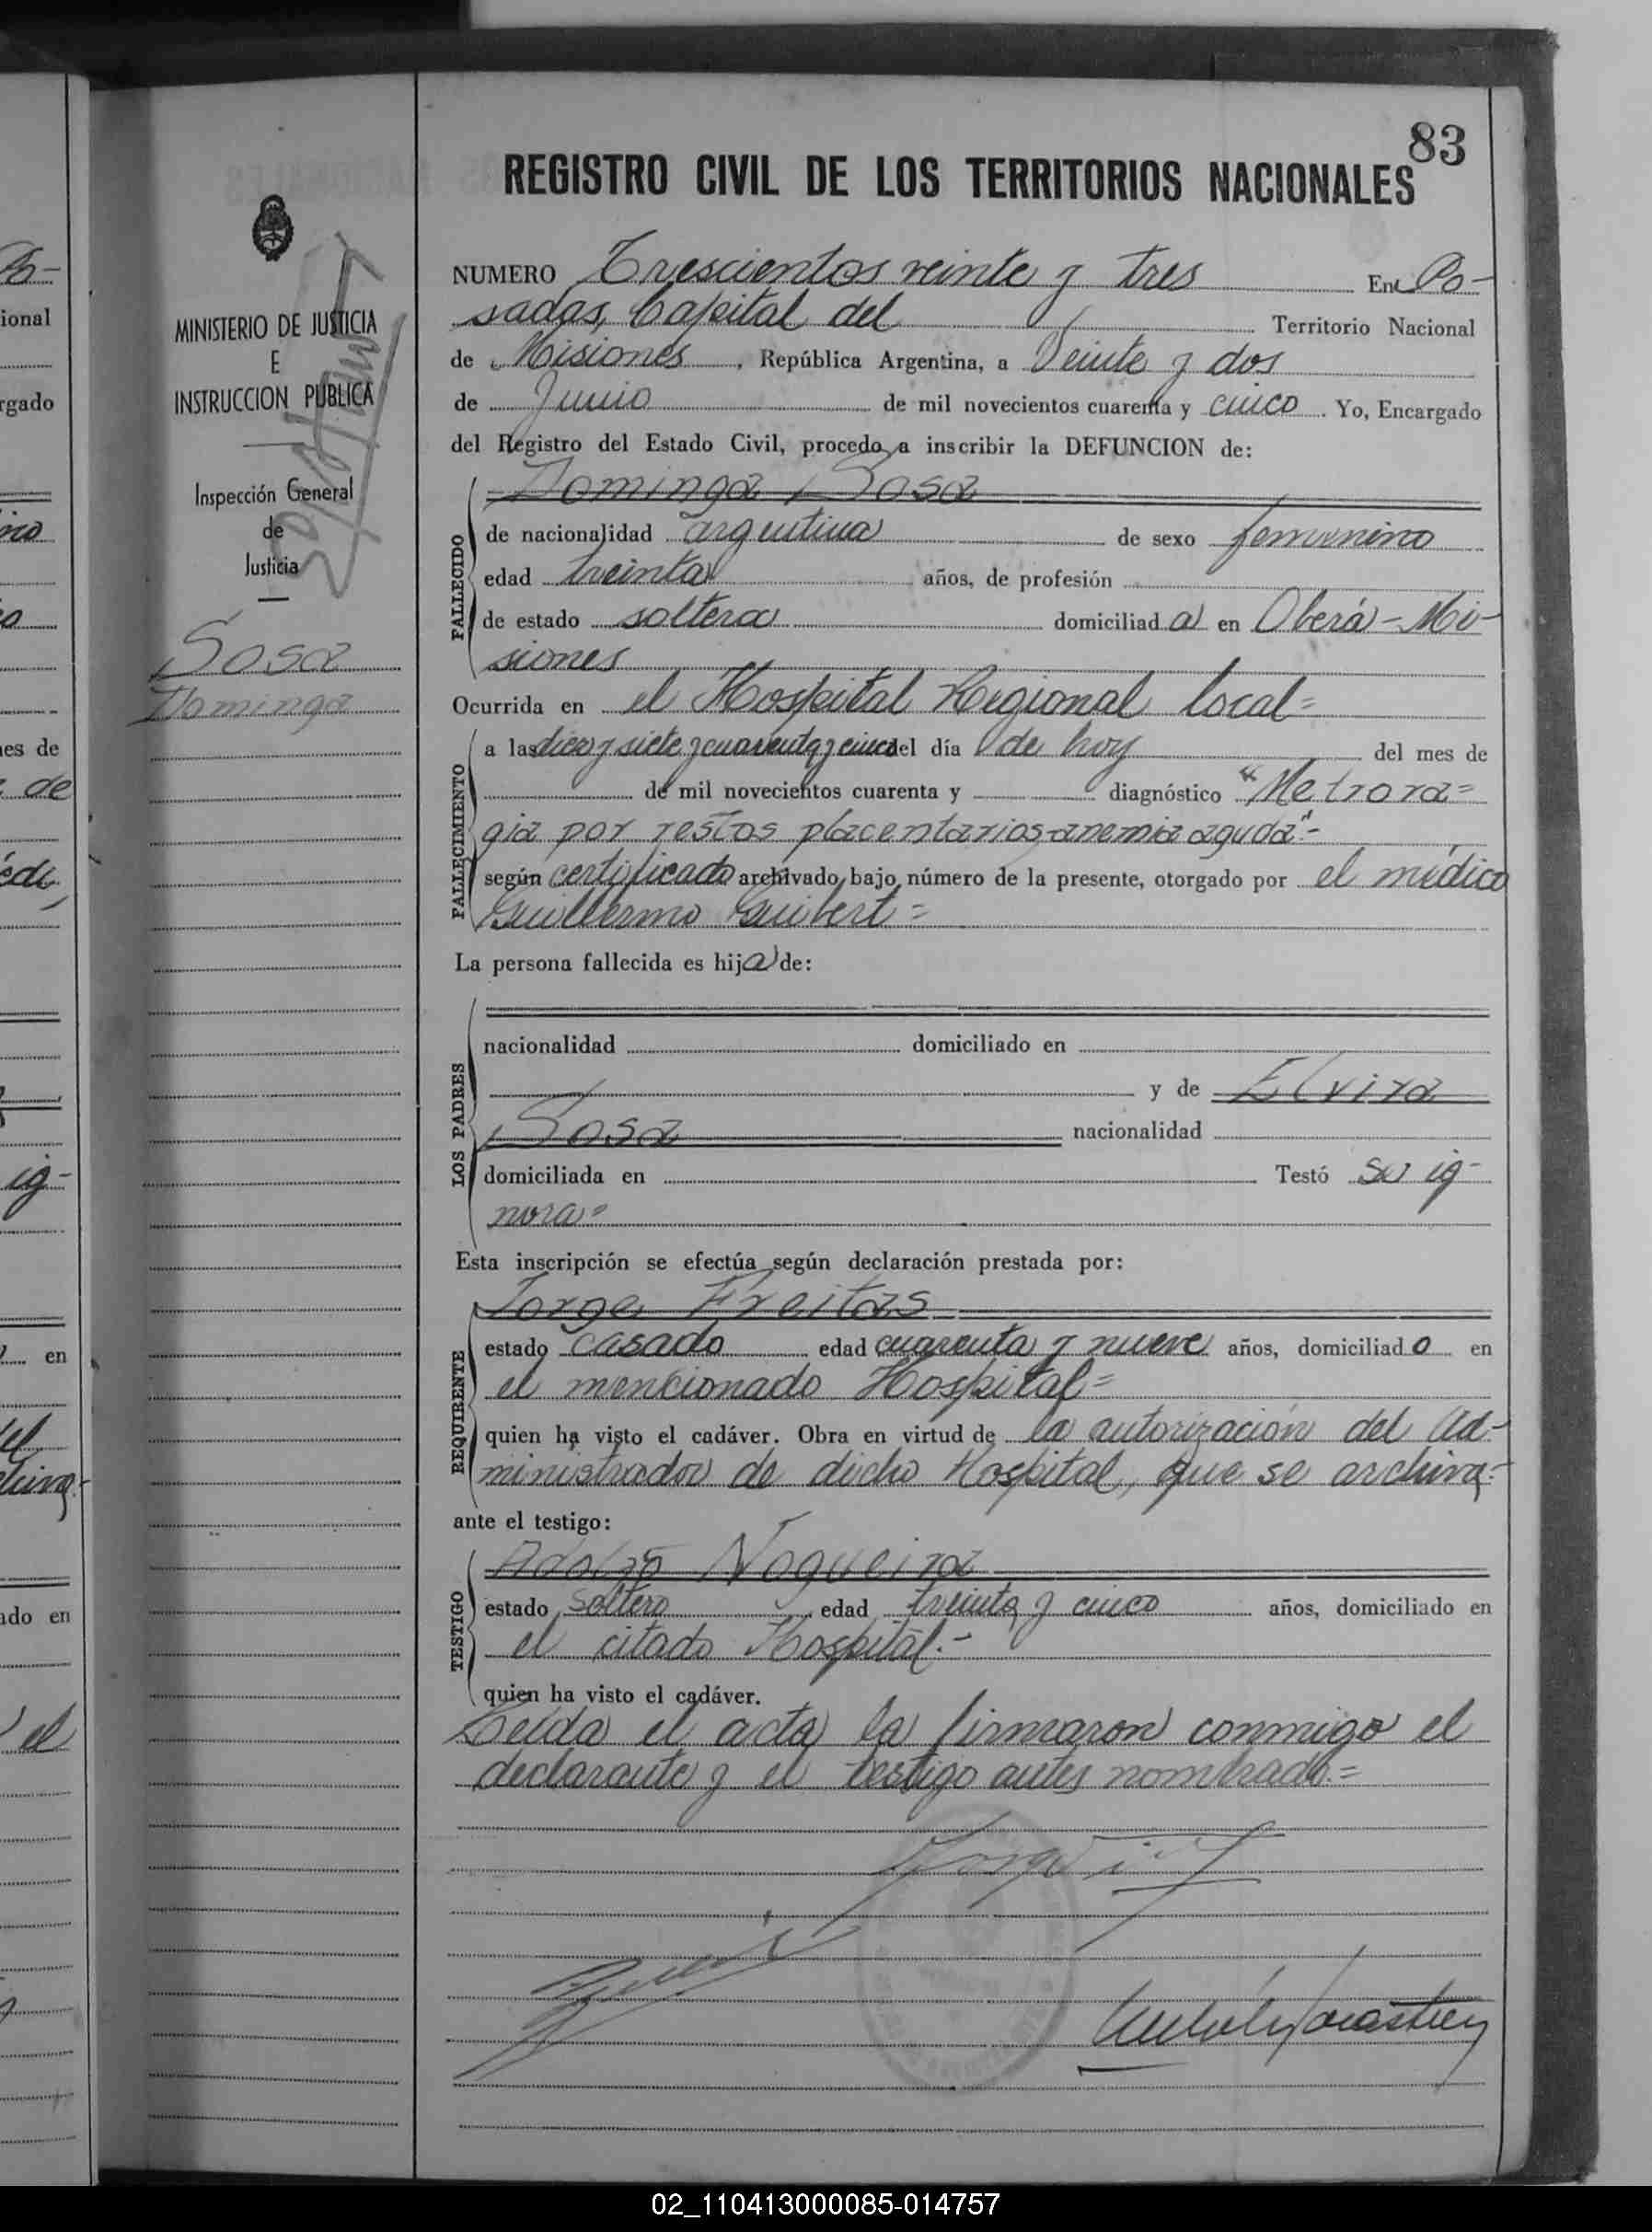 83
REGISTRO CIVIL DE LOS TERRITORIOS NACIONALES
MINISTERIO DE JUSTICIA
E
INSTRUCCION PUBLICA
Inspección General
de
Justicia
Sosa
Dominga
NUMERO Trescientos veinte y tres En Po-
sadas, Capital del Territorio Nacional
de Misiones, República Argentina, a Veinte y dos
de Junio de mil novecientos cuarenta y cinco. Yo, Encargado
del Registro del Estado Civil, procedo a inscribir la DEFUNCION de:
FALLECIDO
Dominga Sosa
de nacionalidad argentina de sexo femenino
edad treinta años, de profesión
de estado soltera domiciliada en Oberá - Mi-
siones
Ocurrida en el Hospital Regional local=
FALLECIMIENTO
a las diez y siete y cuarenta y cinco del día de hoy del mes de
de mil novecientos cuarenta y diagnóstico "Metrora=
gia por restos placentarios-anemia aguda"-
según certificado archivado bajo número de la presente, otorgado por el médico
Guillermo Guibert=
La persona fallecida es hija de:
LOS PADRES
nacionalidad domiciliado en
y de Elvira
Sosa nacionalidad
domiciliada en Testó se ig-
nora=
Esta inscripción se efectúa según declaración prestada por:
REQUIRENTE
Jorge Freitas
estado casado edad cuarenta y nueve años, domiciliado en
el mencionado Hospital=
quien ha visto el cadáver. Obra en virtud de la autorización del Ad-
ministrador de dicho Hospital, que se archiva-
ante el testigo:
TESTIGO
Adolfo Nogueira
estado soltero edad treinta y cinco años, domiciliado en
el citado Hospital.-
quien ha visto el cadáver.
Leída el acta la firmaron conmigo el
declarante y el testigo antes nombrado.=
02_110413000085-014757